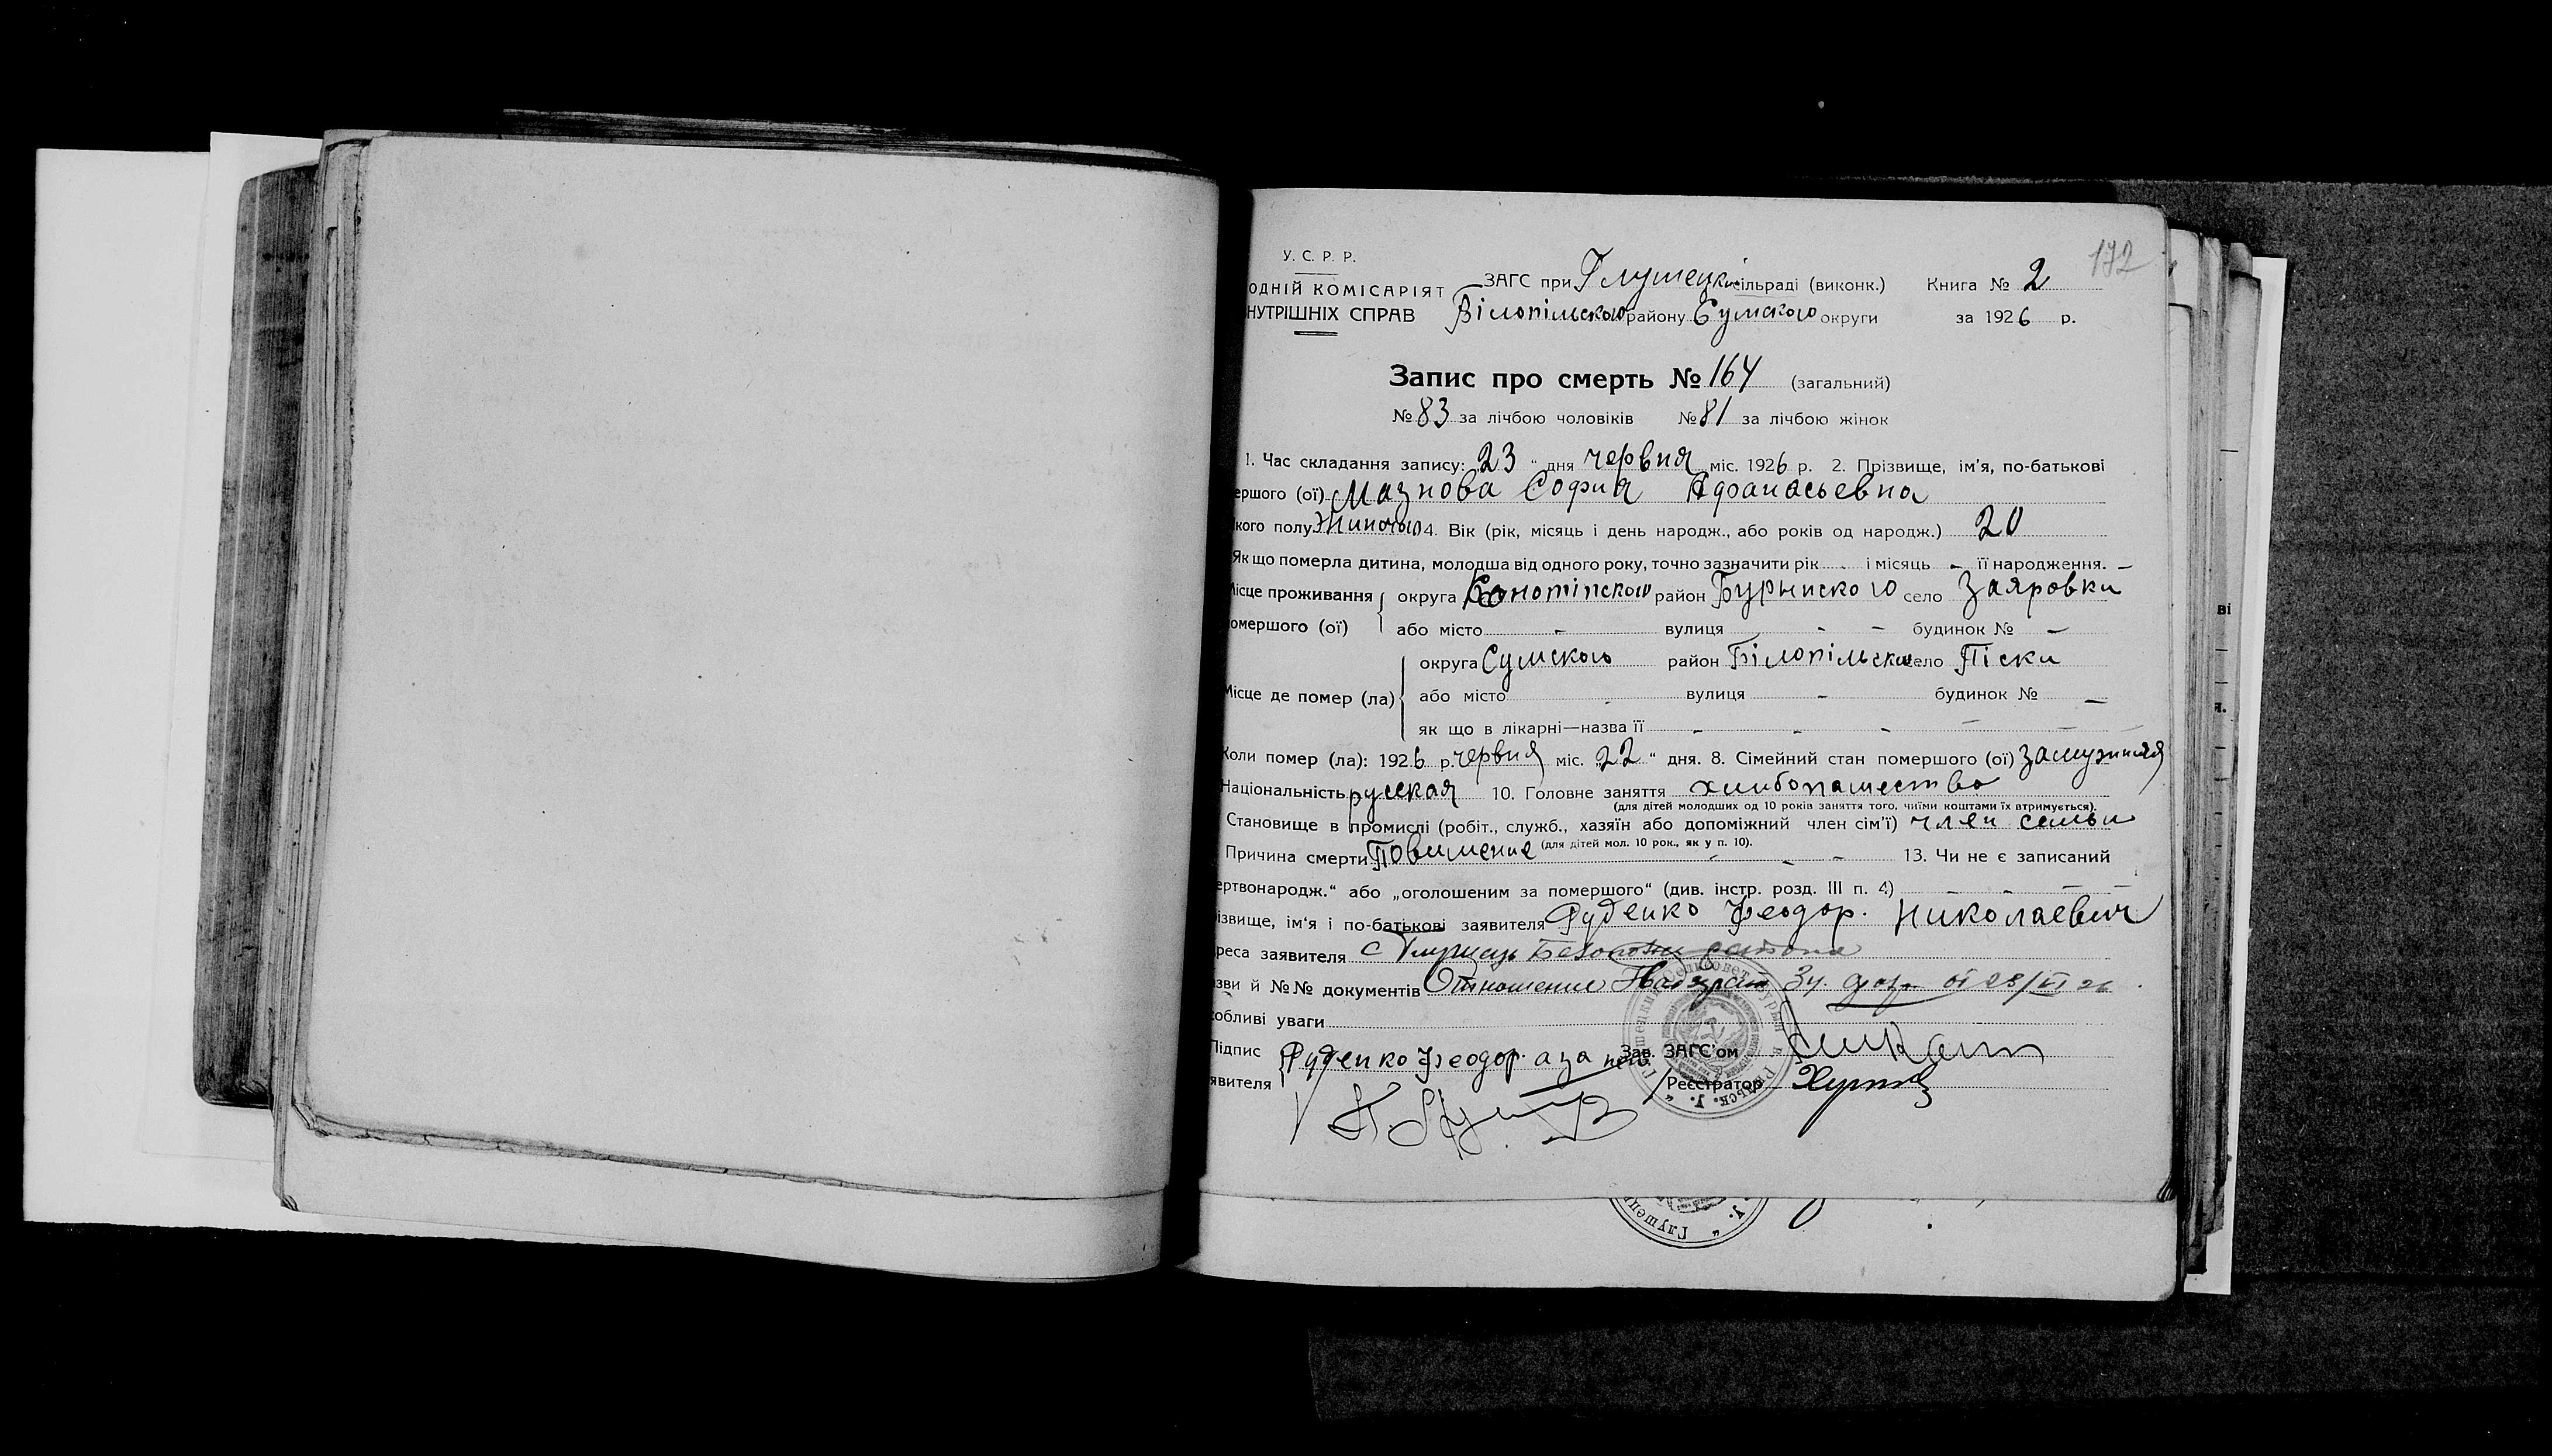 172
У. С. Р. Р.
ОДНІЙ КОМІСАРІЯТ ЗАГС при Глушецкій сільраді (виконк.) Книга № 2
НУТРІШНІХ СПРАВ Білопільского району Сумского округи за 1926 р.
Запис про смерть № 164 (загальний)
№ 83 за лічбою чоловіків № 81 за лічбою жінок
1. Час складання запису: „23“ дня червня міс. 1926 р. 2. Прізвище, ім'я, по-батькові
ершого (ої) Мазнова София Афанасьевна
кого полу Жиночого 4. Вік (рік, місяць і день народж., або років од народж.) 20
Як що померла дитина, молодша від одного року, точно зазначити рік - і місяць - її народження. -
Місце проживання округа Конотіпского район Бурынского село Заяровки
омершого (ої) або місто - вулиця - - будинок № -
округа Сумского район Білопільско село Піски
Місце де помер (ла) або місто - вулиця - будинок № -
як що в лікарні—назва її - - - - -
Коли помер (ла): 1926 р. червня міс. „22“ дня. 8. Сімейний стан помершого (ої) замужняя
Національність русская 10. Головне заняття хлибопашество
(для дітей молодших од 10 років заняття того, чиїми коштами їх втримується).
Становище в промислі (робіт., служб., хазяїн або допоміжний член сім'ї) член семьи
(для дітей мол. 10 рок., як у п. 10).
Причина смерти Повишение - - - 13. Чи не є записаний
ертвонародж.“ або „оголошеним за помершого“ (див. інстр. розд. III п. 4) - - - -
ізвище, ім'я і по-батькові заявителя Руденко Феодор. Николаевич
реса заявителя с Глушець
зви й №№ документів Отношение 3 у. от 23/VI 26
обливі уваги
Підпис Руденко Феодор. а за него Зав. ЗАГС'ом
явителя Реєстратор
Глушец
ві
я.